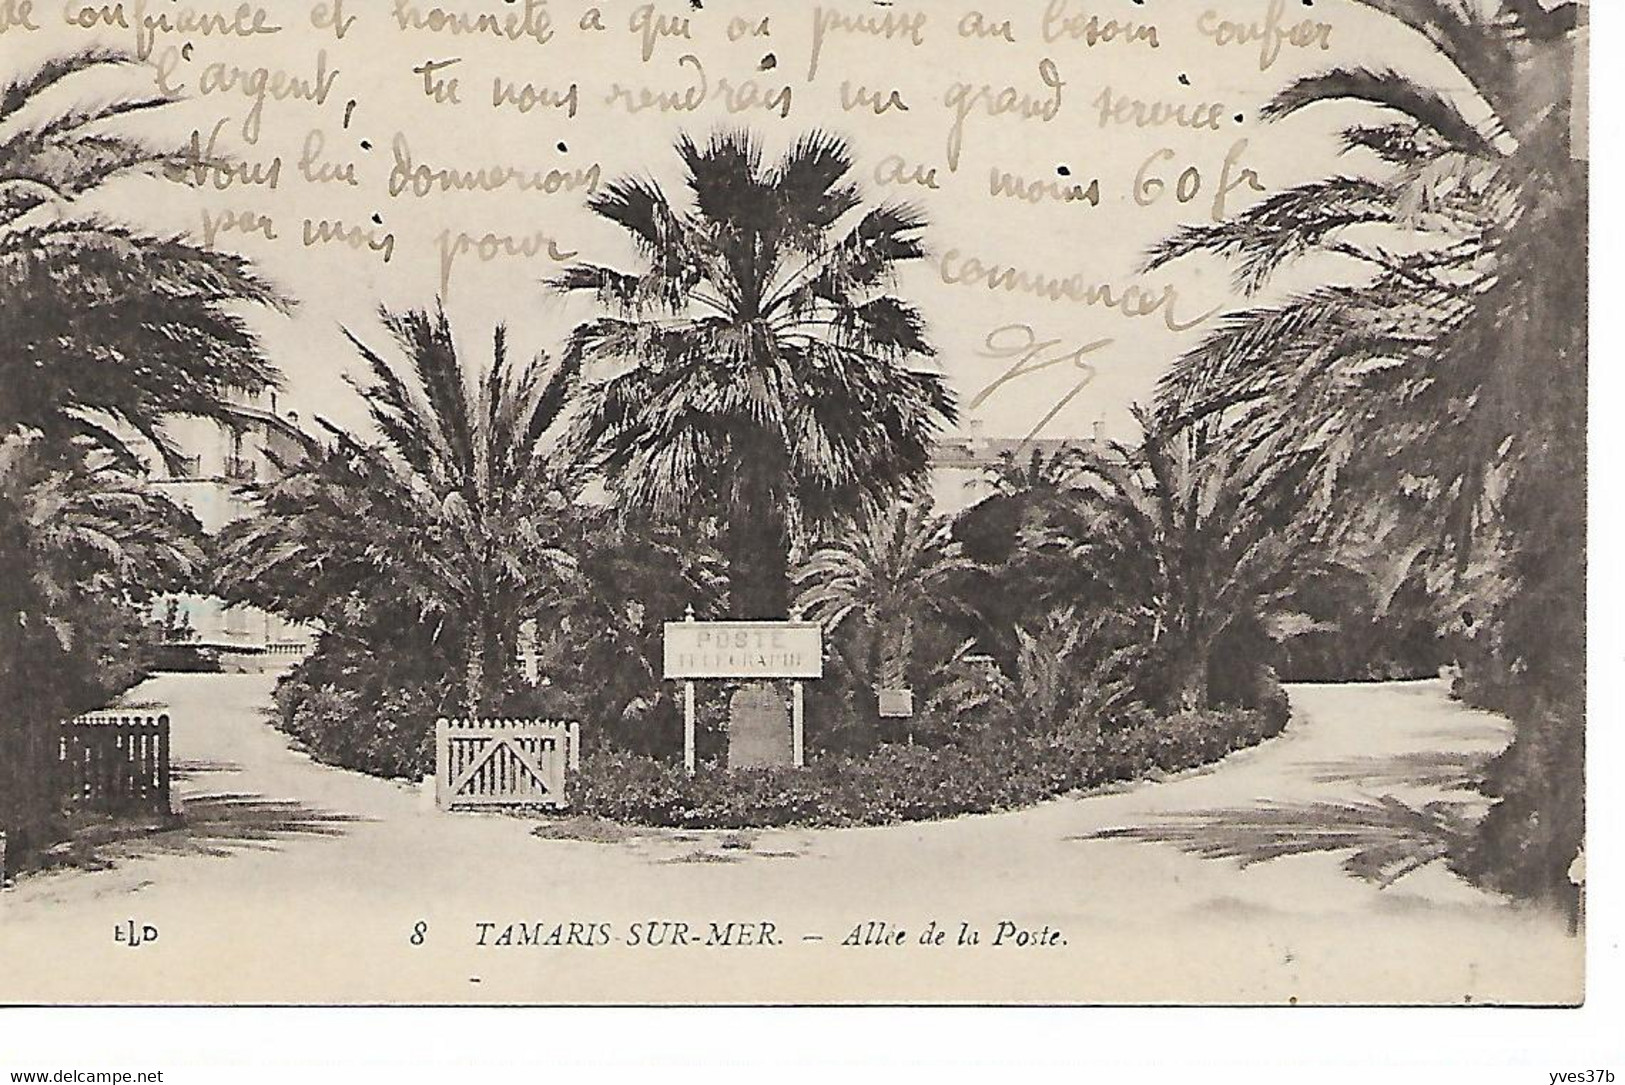 de confiance et honnête à qui on puisse au besoin confier
l'argent, tu nous rendrais un grand service.
Nous lui donnerions au moins 60 fr
par mois pour commencer
POSTE
TELEGRAPHE
ELD 8 TAMARIS-SUR-MER. - Allée de la Poste.
www.delcampe.net yves37b